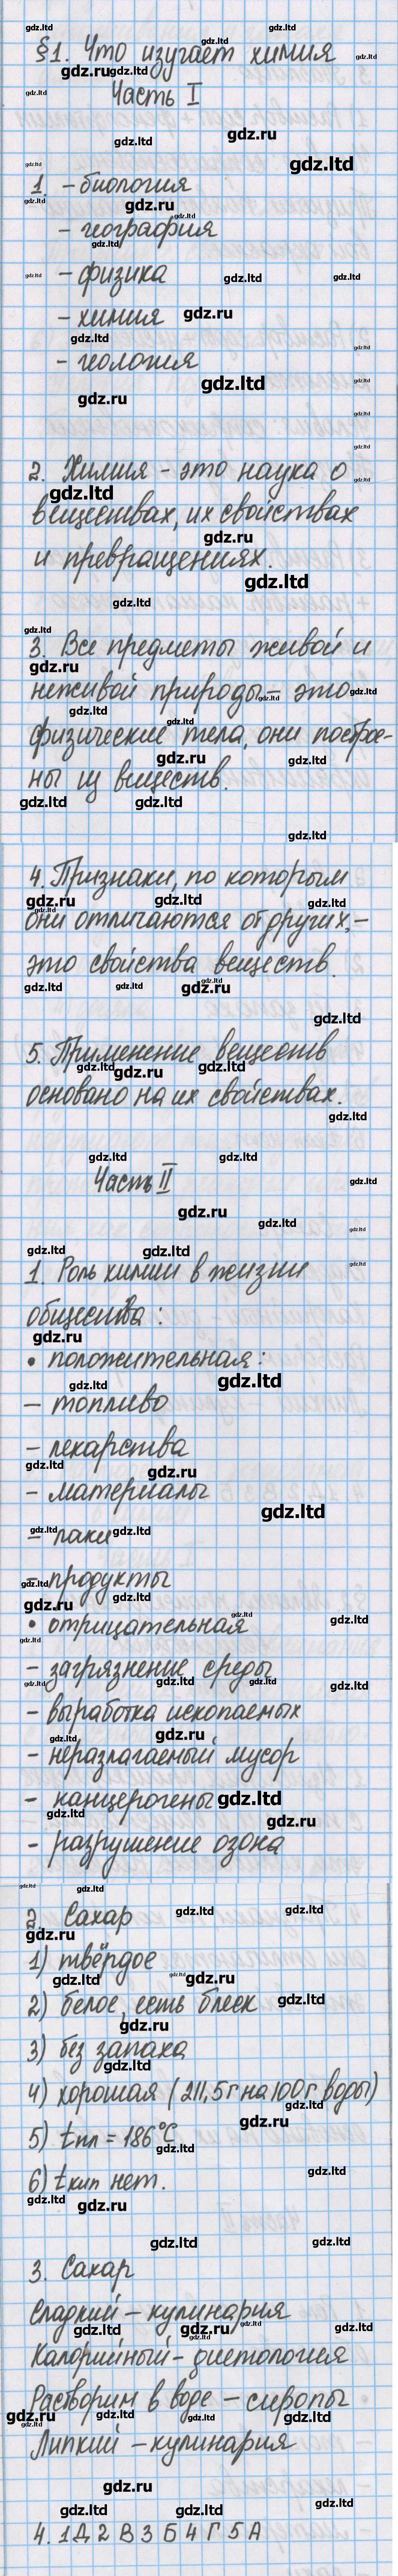 §1. Что изучает химия
Часть I
1. – биология
– география
– физика
– химия
– геология
2. Химия – это наука о
веществах, их свойствах
и превращениях.
3. Все предметы живой и
неживой природы – это
физические тела, они построе-
ны из веществ.
4. Признаки, по которым
они отличаются от других, –
это свойства веществ.
5. Применение веществ
основано на их свойствах.
Часть II
1. Роль химии в жизни
общества:
• положительная:
– топливо
– лекарства
– материалы
– лаки
– продукты
• отрицательная
– загрязнение среды
– выработка ископаемых
– неразлагаемый мусор
– канцерогены
– разрушение озона
2. Сахар
1) твёрдое
2) белое, есть блеск
3) без запаха
4) хорошая (211,5 г на 100 г воды)
5) tпл = 186°C
6) tкип нет.
3. Сахар
Сладкий – кулинария
Калорийный – диетология
Растворим в воде – сиропы
Липкий – кулинария
4. 1 Д 2 В 3 Б 4 Г 5 А